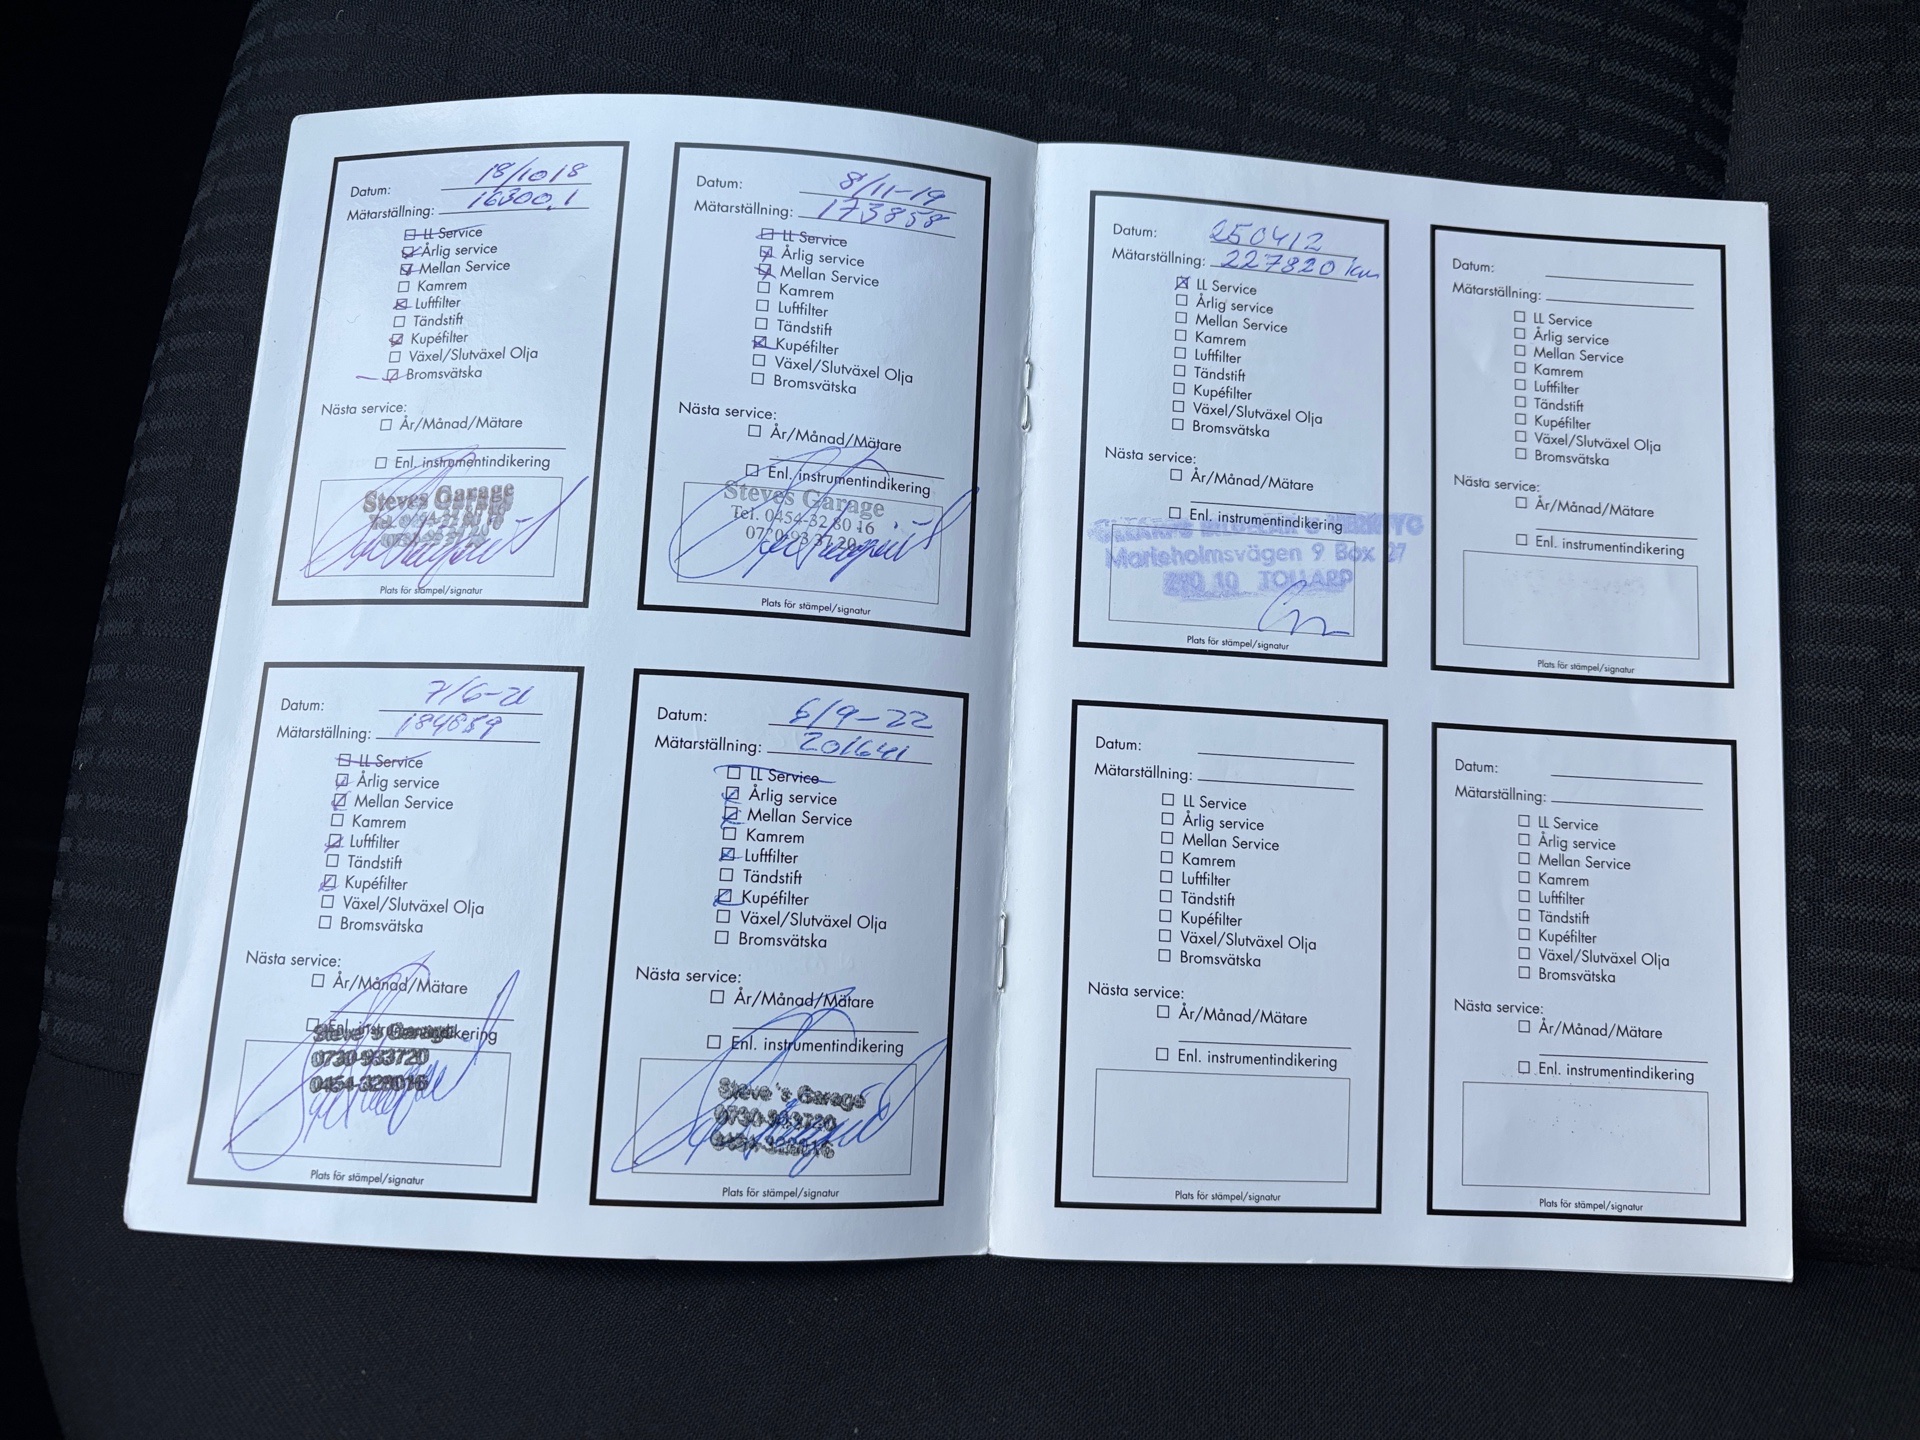 Datum: 18/10 18
Mätarställning: 16300.1
LL Service
Årlig service
Mellan Service
Kamrem
Luftfilter
Tändstift
Kupéfilter
Växel/Slutväxel Olja
Bromsvätska
Nästa service:
År/Månad/Mätare
Enl. instrumentindikering
Steves Garage
Tel. 0454-32 80 16
Plats för stämpel/signatur
Datum: 8/11-19
Mätarställning: 173858
LL Service
Årlig service
Mellan Service
Kamrem
Luftfilter
Tändstift
Kupéfilter
Växel/Slutväxel Olja
Bromsvätska
Nästa service:
År/Månad/Mätare
Enl. instrumentindikering
Steves Garage
Tel. 0454-32 80 16
0730-93 37 20
Plats för stämpel/signatur
Datum: 7/6-21
Mätarställning: 184859
LL Service
Årlig service
Mellan Service
Kamrem
Luftfilter
Tändstift
Kupéfilter
Växel/Slutväxel Olja
Bromsvätska
Nästa service:
År/Månad/Mätare
Enl. instrumentindikering
Steve's Garage
0730-933720
0454-328016
Plats för stämpel/signatur
Datum: 6/9-22
Mätarställning: 201641
LL Service
Årlig service
Mellan Service
Kamrem
Luftfilter
Tändstift
Kupéfilter
Växel/Slutväxel Olja
Bromsvätska
Nästa service:
År/Månad/Mätare
Enl. instrumentindikering
Steve's Garage
0730-933720
0454-328016
Plats för stämpel/signatur
Datum: 250412
Mätarställning: 227820 km
LL Service
Årlig service
Mellan Service
Kamrem
Luftfilter
Tändstift
Kupéfilter
Växel/Slutväxel Olja
Bromsvätska
Nästa service:
År/Månad/Mätare
Enl. instrumentindikering
Marieholmsvägen 9 Box 27
290 10 TOLLARP
Plats för stämpel/signatur
Datum:
Mätarställning:
LL Service
Årlig service
Mellan Service
Kamrem
Luftfilter
Tändstift
Kupéfilter
Växel/Slutväxel Olja
Bromsvätska
Nästa service:
År/Månad/Mätare
Enl. instrumentindikering
Plats för stämpel/signatur
Datum:
Mätarställning:
LL Service
Årlig service
Mellan Service
Kamrem
Luftfilter
Tändstift
Kupéfilter
Växel/Slutväxel Olja
Bromsvätska
Nästa service:
År/Månad/Mätare
Enl. instrumentindikering
Plats för stämpel/signatur
Datum:
Mätarställning:
LL Service
Årlig service
Mellan Service
Kamrem
Luftfilter
Tändstift
Kupéfilter
Växel/Slutväxel Olja
Bromsvätska
Nästa service:
År/Månad/Mätare
Enl. instrumentindikering
Plats för stämpel/signatur